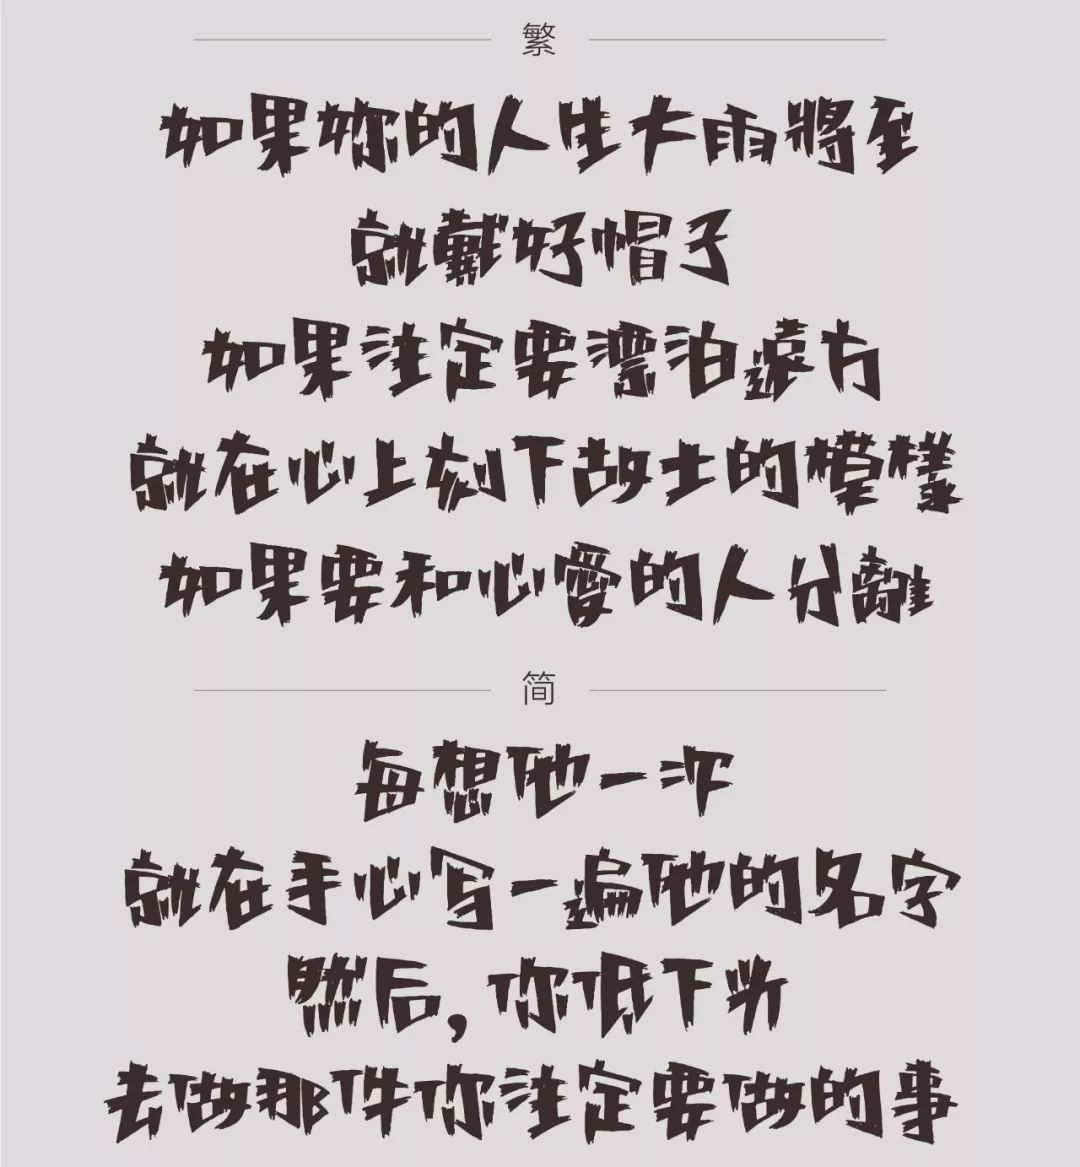 繁
如果妳的人生大雨將至
就戴好帽子
如果注定要漂泊遠方
就在心上刻下故土的模樣
如果要和心愛的人分離
简
每想他一次
就在手心写一遍他的名字
然后，你低下头
去做那件你注定要做的事